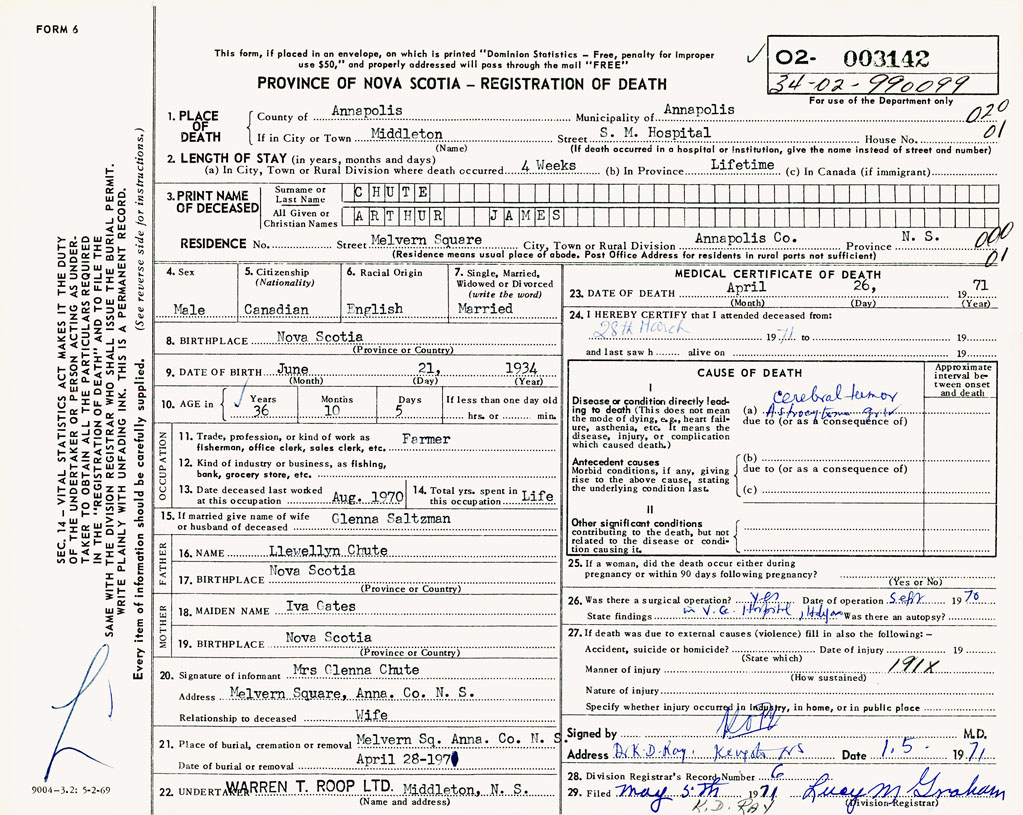 FORM 6
This form, if placed in an envelope, on which is printed "Dominion Statistics – Free, penalty for improper
use $50," and properly addressed will pass through the mail "FREE"
02- 003142
34-02-990099
For use of the Department only
PROVINCE OF NOVA SCOTIA – REGISTRATION OF DEATH
1. PLACE OF DEATH
County of Annapolis Municipality of Annapolis 020
If in City or Town Middleton Street S. M. Hospital House No. 01
(Name) (If death occurred in a hospital or institution, give the name instead of street and number)
2. LENGTH OF STAY (in years, months and days)
(a) In City, Town or Rural Division where death occurred 4 Weeks (b) In Province Lifetime (c) In Canada (if immigrant)
3. PRINT NAME OF DECEASED
Surname or Last Name CHUTE
All Given or Christian Names ARTHUR JAMES
RESIDENCE No. Street Melvern Square City, Town or Rural Division Annapolis Co. Province N. S. 000
(Residence means usual place of abode. Post Office Address for residents in rural ports not sufficient) 01
4. Sex
Male
5. Citizenship
(Nationality)
Canadian
6. Racial Origin
English
7. Single, Married,
Widowed or Divorced
(write the word)
Married
8. BIRTHPLACE Nova Scotia
(Province or Country)
9. DATE OF BIRTH June 21, 1934
(Month) (Day) (Year)
10. AGE in Years Months Days If less than one day old
36 10 5 hrs. or min.
OCCUPATION
11. Trade, profession, or kind of work as
fisherman, office clerk, sales clerk, etc. Farmer
12. Kind of industry or business, as fishing,
bank, grocery store, etc.
13. Date deceased last worked
at this occupation Aug. 1970
14. Total yrs. spent in
this occupation Life
15. If married give name of wife
or husband of deceased Glenna Saltzman
FATHER
16. NAME Llewellyn Chute
17. BIRTHPLACE Nova Scotia
(Province or Country)
MOTHER
18. MAIDEN NAME Iva Gates
19. BIRTHPLACE Nova Scotia
(Province or Country)
20. Signature of informant Mrs Glenna Chute
Address Melvern Square, Anna. Co. N. S.
Relationship to deceased Wife
21. Place of burial, cremation or removal Melvern Sq. Anna. Co. N. S.
Date of burial or removal April 28-1971
22. UNDERTAKER WARREN T. ROOP LTD. Middleton, N. S.
(Name and address)
MEDICAL CERTIFICATE OF DEATH
23. DATE OF DEATH April 26, 1971
(Month) (Day) (Year)
24. I HEREBY CERTIFY that I attended deceased from:
28th March 1971 to 19
and last saw h alive on 19
CAUSE OF DEATH
Approximate
interval be-
tween onset
and death
I
Disease or condition directly lead-
ing to death (This does not mean
the mode of dying, e.g., heart fail-
ure, asthenia, etc. It means the
disease, injury, or complication
which caused death.)
cerebral tumor
(a) Astrocytoma
due to (or as a consequence of)
Antecedent causes
Morbid conditions, if any, giving
rise to the above cause, stating
the underlying condition last.
(b)
due to (or as a consequence of)
(c)
II
Other significant conditions
contributing to the death, but not
related to the disease or condi-
tion causing it.
25. If a woman, did the death occur either during
pregnancy or within 90 days following pregnancy?
(Yes or No)
26. Was there a surgical operation? yes Date of operation Sept 1970
State findings in V.G. Hospital, Was there an autopsy?
27. If death was due to external causes (violence) fill in also the following: –
Accident, suicide or homicide? Date of injury 19
(State which)
Manner of injury 191X
(How sustained)
Nature of injury
Specify whether injury occurred in Industry, in home, or in public place
Signed by M.D.
Address Dr K. D. Ray. Kingston NS Date 1.5. 1971
28. Division Registrar's Record Number 6
29. Filed May 5th 1971 Lucy M Graham
K.D. RAY (Division Registrar)
SEC. 14 – VITAL STATISTICS ACT MAKES IT THE DUTY
OF THE UNDERTAKER OR PERSON ACTING AS UNDER.
TAKER TO OBTAIN ALL THE PARTICULARS REQUIRED
IN THE "REGISTRATION OF DEATH" AND TO FILE THE
SAME WITH THE DIVISION REGISTRAR WHO SHALL ISSUE THE BURIAL PERMIT.
WRITE PLAINLY WITH UNFADING INK. THIS IS A PERMANENT RECORD.
Every item of information should be carefully supplied. (See reverse side for instructions.)
9004-3.2: 5-2-69